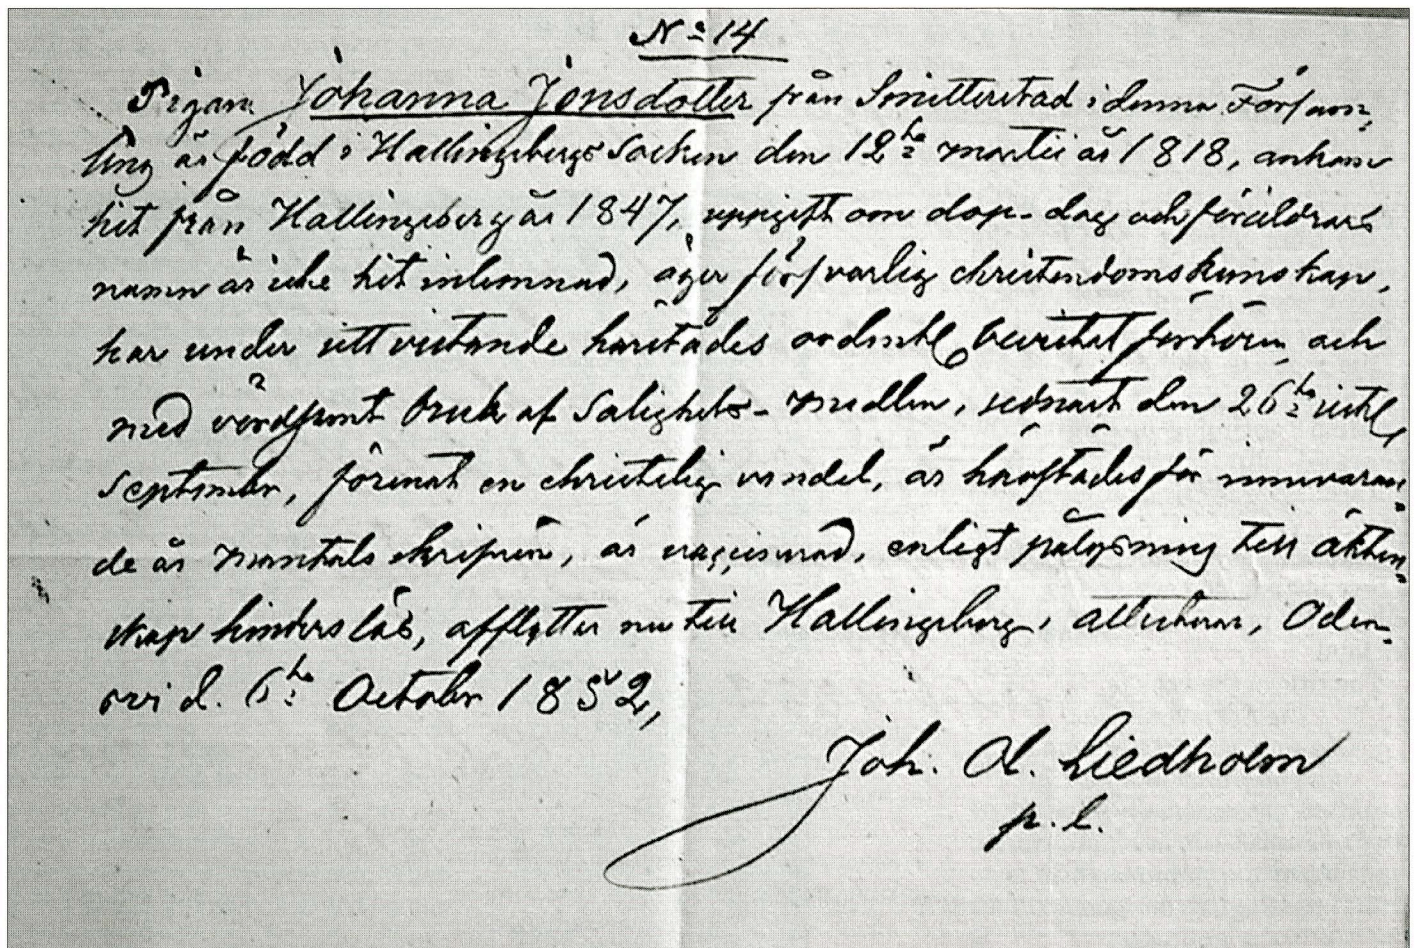 No 14
Pigan Johanna Jonsdotter från Smitterstad i denna Försam-
ling är född i Hallingebergs Socken den 12te martii år 1818, ankom
hit från Hallingeberg år 1847, uppgift om dop-dag och föräldrars
namn är icke hit inlemnad, äger försvarlig christendomskunskap,
har under sitt vistande härstädes ordentl bevistat förhören och
med vördsamt bruk af Salighets-medlen, sednast den 26te sistl
September, förenat en christelig vandel, är härstädes för innevaran-
de år mantals skrifven, är vaccinerad, enligt pålysning till äkten-
skap hinderslös, afflyttar nu till Hallingeberg, attesteras, Odens-
vi d. 6te October 1852,
Joh. Ol. Liedholm
p. l.